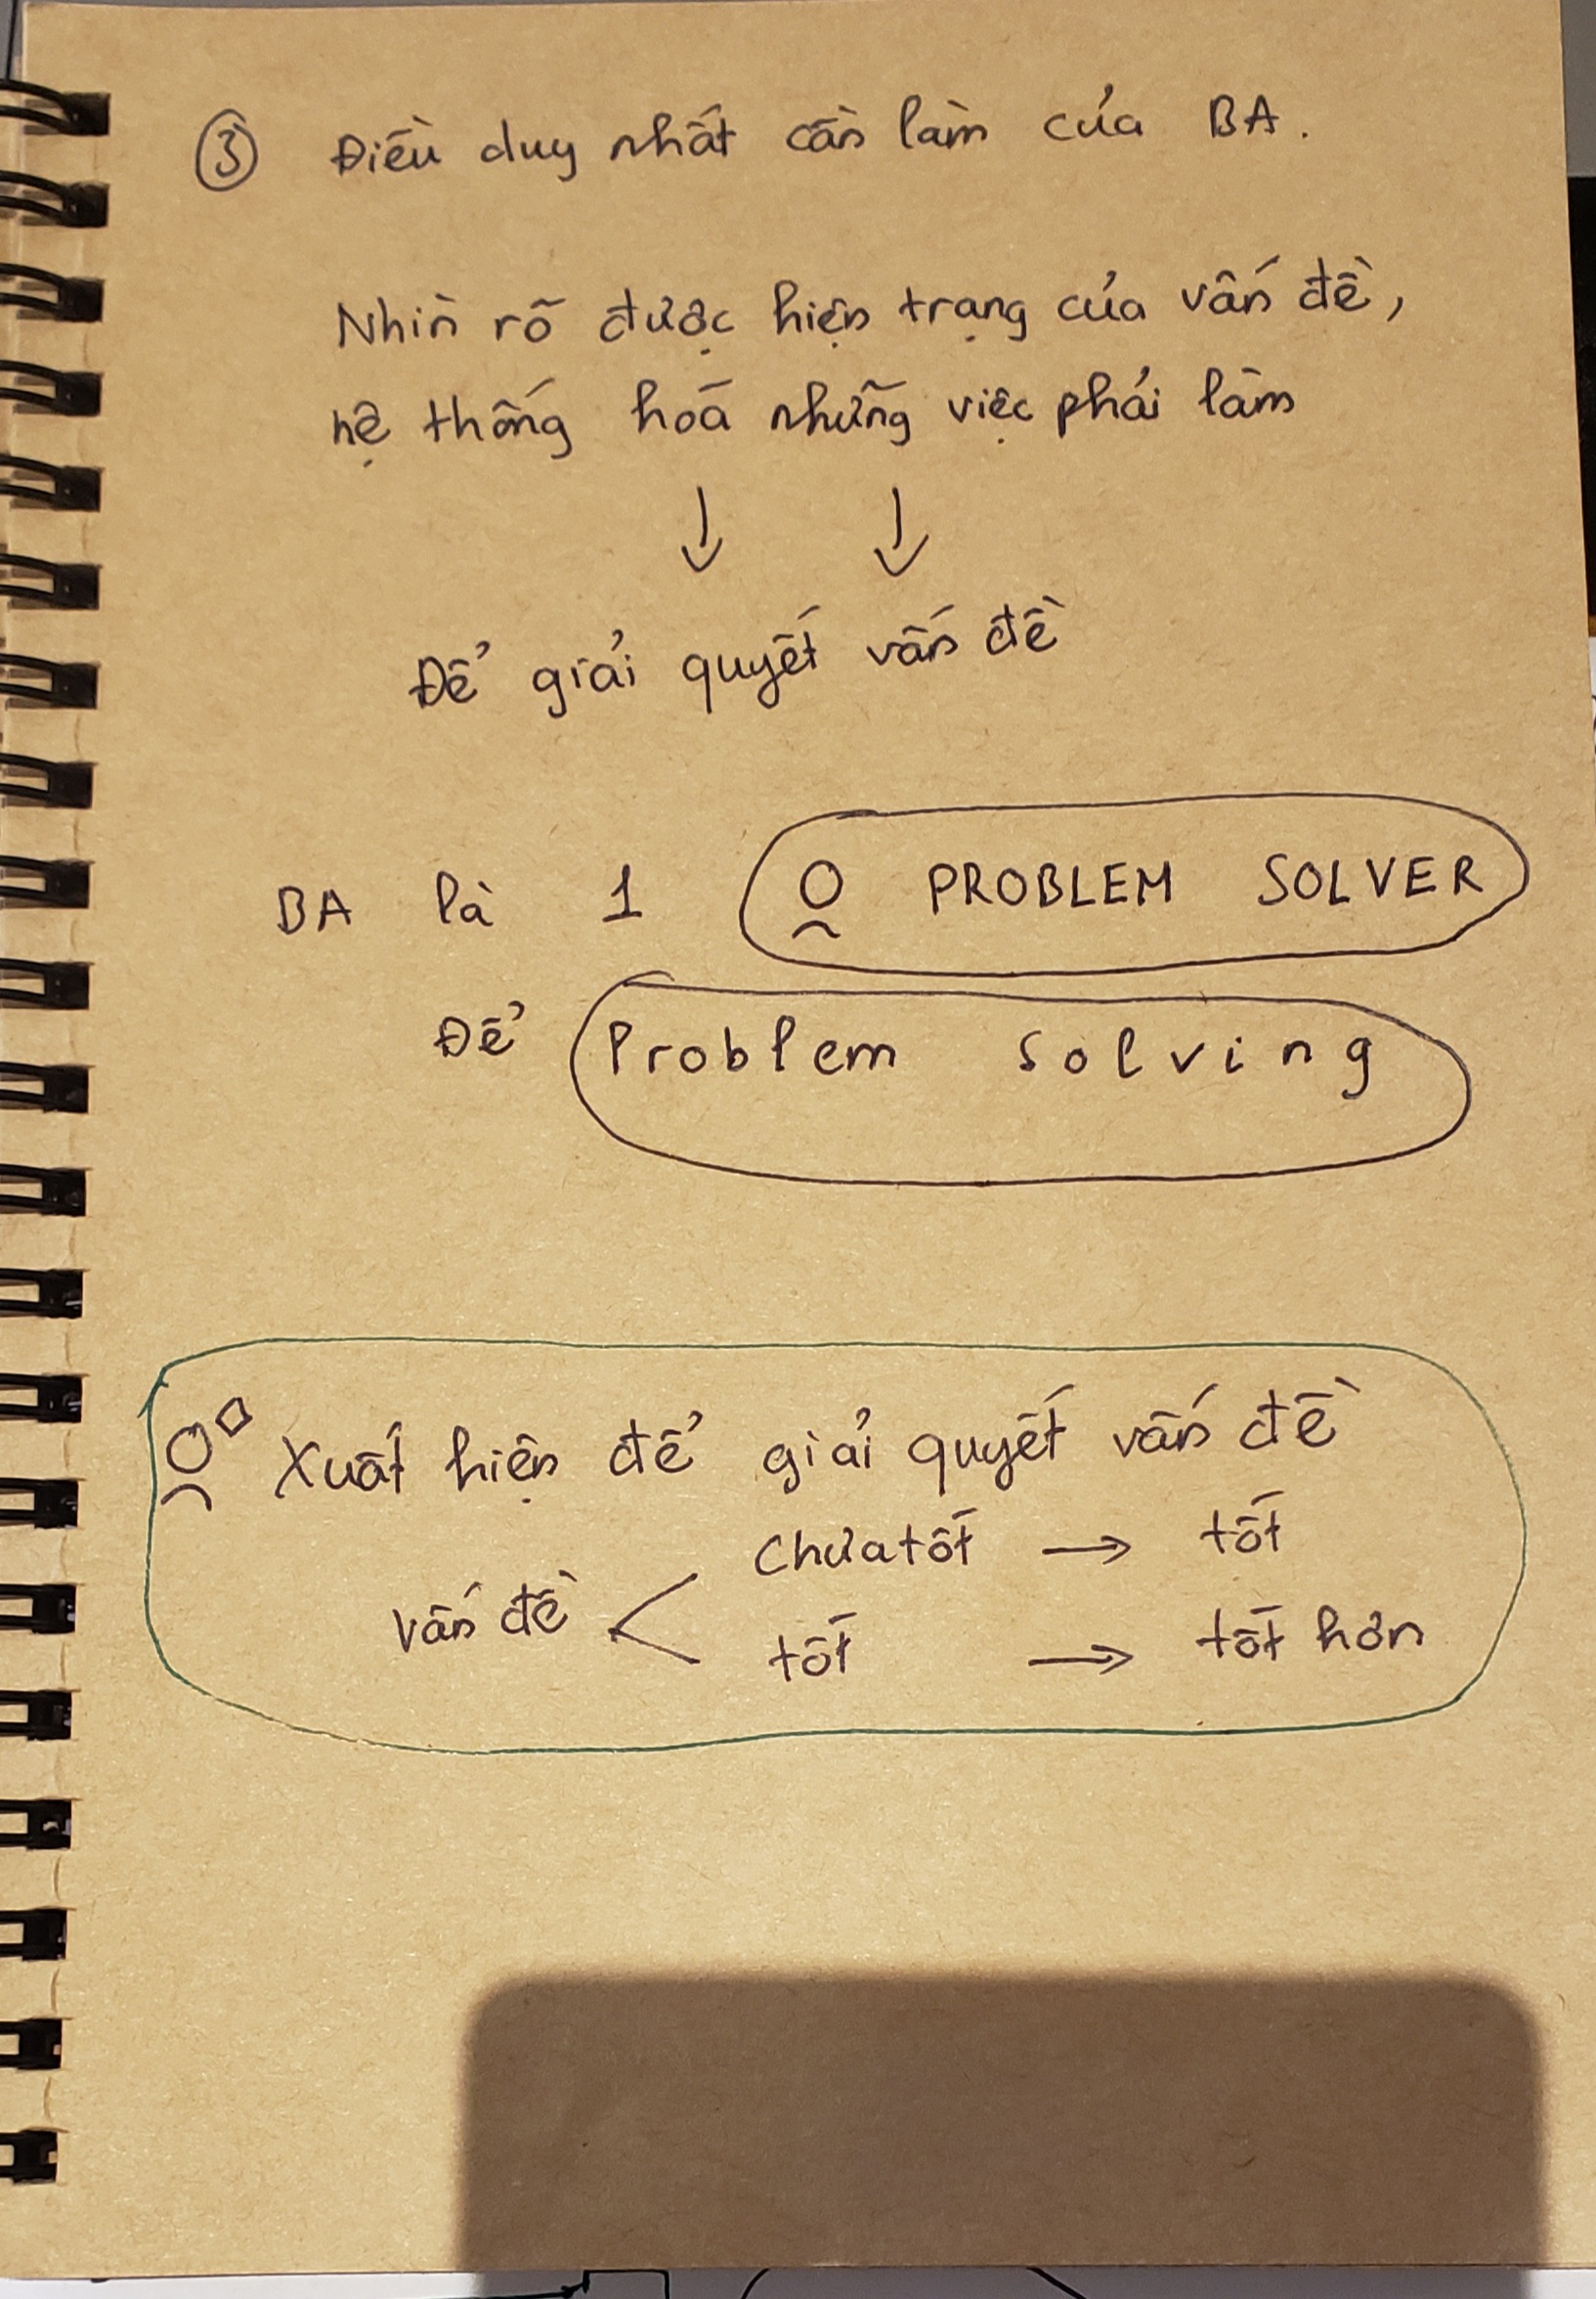 ③ Điều duy nhất cần làm của BA.
Nhìn rõ được hiện trạng của vấn đề,
hệ thống hoá những việc phải làm
↓ ↓
Để giải quyết vấn đề
BA là 1 PROBLEM SOLVER
Để Problem solving
Xuất hiện để giải quyết vấn đề
chưa tốt → tốt
vấn đề <
tốt → tốt hơn